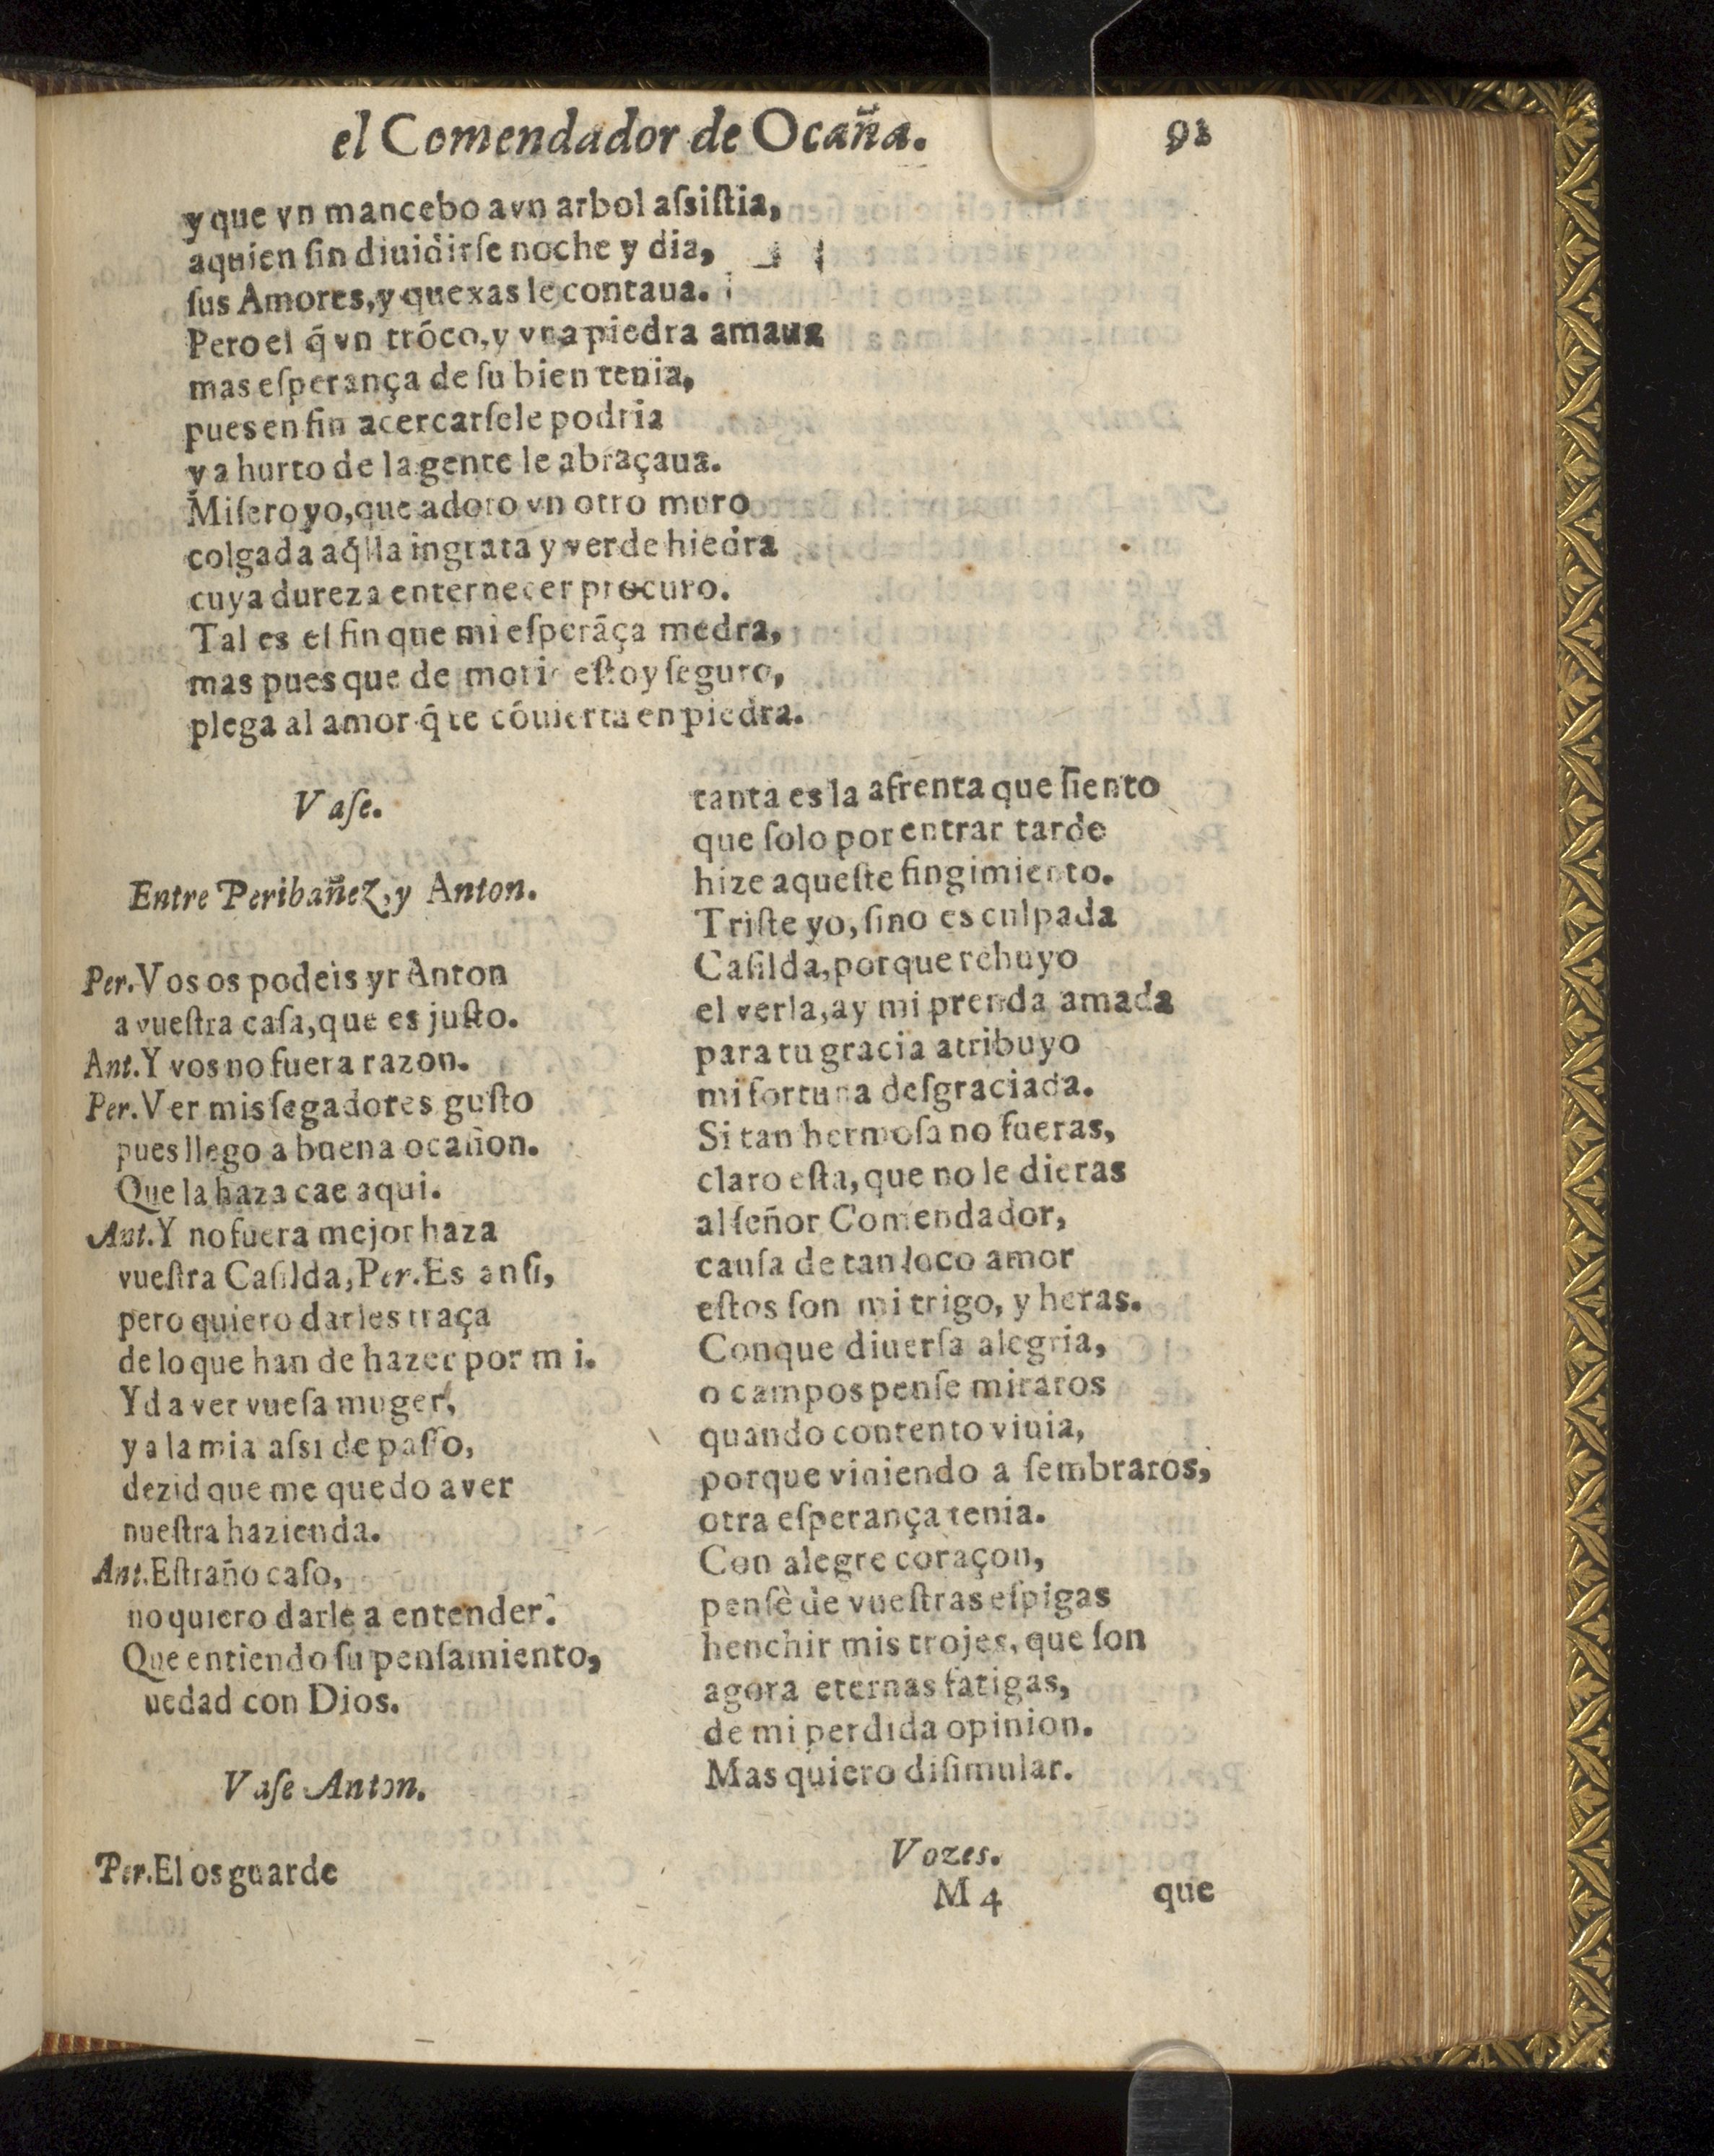 el Comendador de Ocaña. 92
y que vn mancebo avn arbol aſsiſtia,
aquien ſin diuidirſe noche y dia,
ſus Amores,y quexas le contaua.
Pero el q̃ vn tróco,y vna piedra amaua
mas eſperança de ſu bien tenia,
pues en fin acercarſele podria
y a hurto de la gente le abraçaua.
Miſero yo,que adoro vn otro muro
colgada aq̃lla ingrata y verde hiedra
cuya dureza enternecer procuro.
Tal es el fin que mi eſperãça medra,
mas pues que de morir eſtoy ſeguro,
plega al amor q̃ te cóuierta en piedra.
Vaſe.
Entre Peribañez,y Anton.
Per.Vos os podeis yr Anton
a vueſtra caſa,que es juſto.
Ant.Y vos no fuera razon.
Per.Ver mis ſegadores guſto
pues llego à buena ocaſion.
Que la haza cae aqui.
Ant.Y no fuera mejor haza
vueſtra Caſilda,Per.Es anſi,
pero quiero darles traça
de lo que han de hazer por m i.
Yd a ver vueſa muger,
y a la mia aſsi de paſſo,
dezid que me quedo a ver
nueſtra hazienda.
Ant.Eſtraño caſo,
no quiero darle a entender.
Que entiendo ſu penſamiento,
uedad con Dios.
Vaſe Anton.
Per.El os guarde
tanta es la afrenta que ſiento
que ſolo por entrar tarde
hize aqueſte fingimiento.
Triſte yo, ſino es culpada
Caſilda,porque rehuyo
el verla,ay mi prenda amada
para tu gracia atribuyo
mi fortuna deſgraciada.
Si tan hermoſa no fueras,
claro eſta, que no le dieras
al ſeñor Comendador,
cauſa de tan loco amor
eſtos ſon mi trigo, y heras.
Conque diuerſa alegria,
o campos penſe miraros
quando contento viuia,
porque viniendo a ſembraros,
otra eſperança tenia.
Con alegre coraçon,
penſè de vueſtras eſpigas
henchir mis trojes, que ſon
agora eternas fatigas,
de mi perdida opinion.
Mas quiero diſimular.
Vozes.
M 4 que